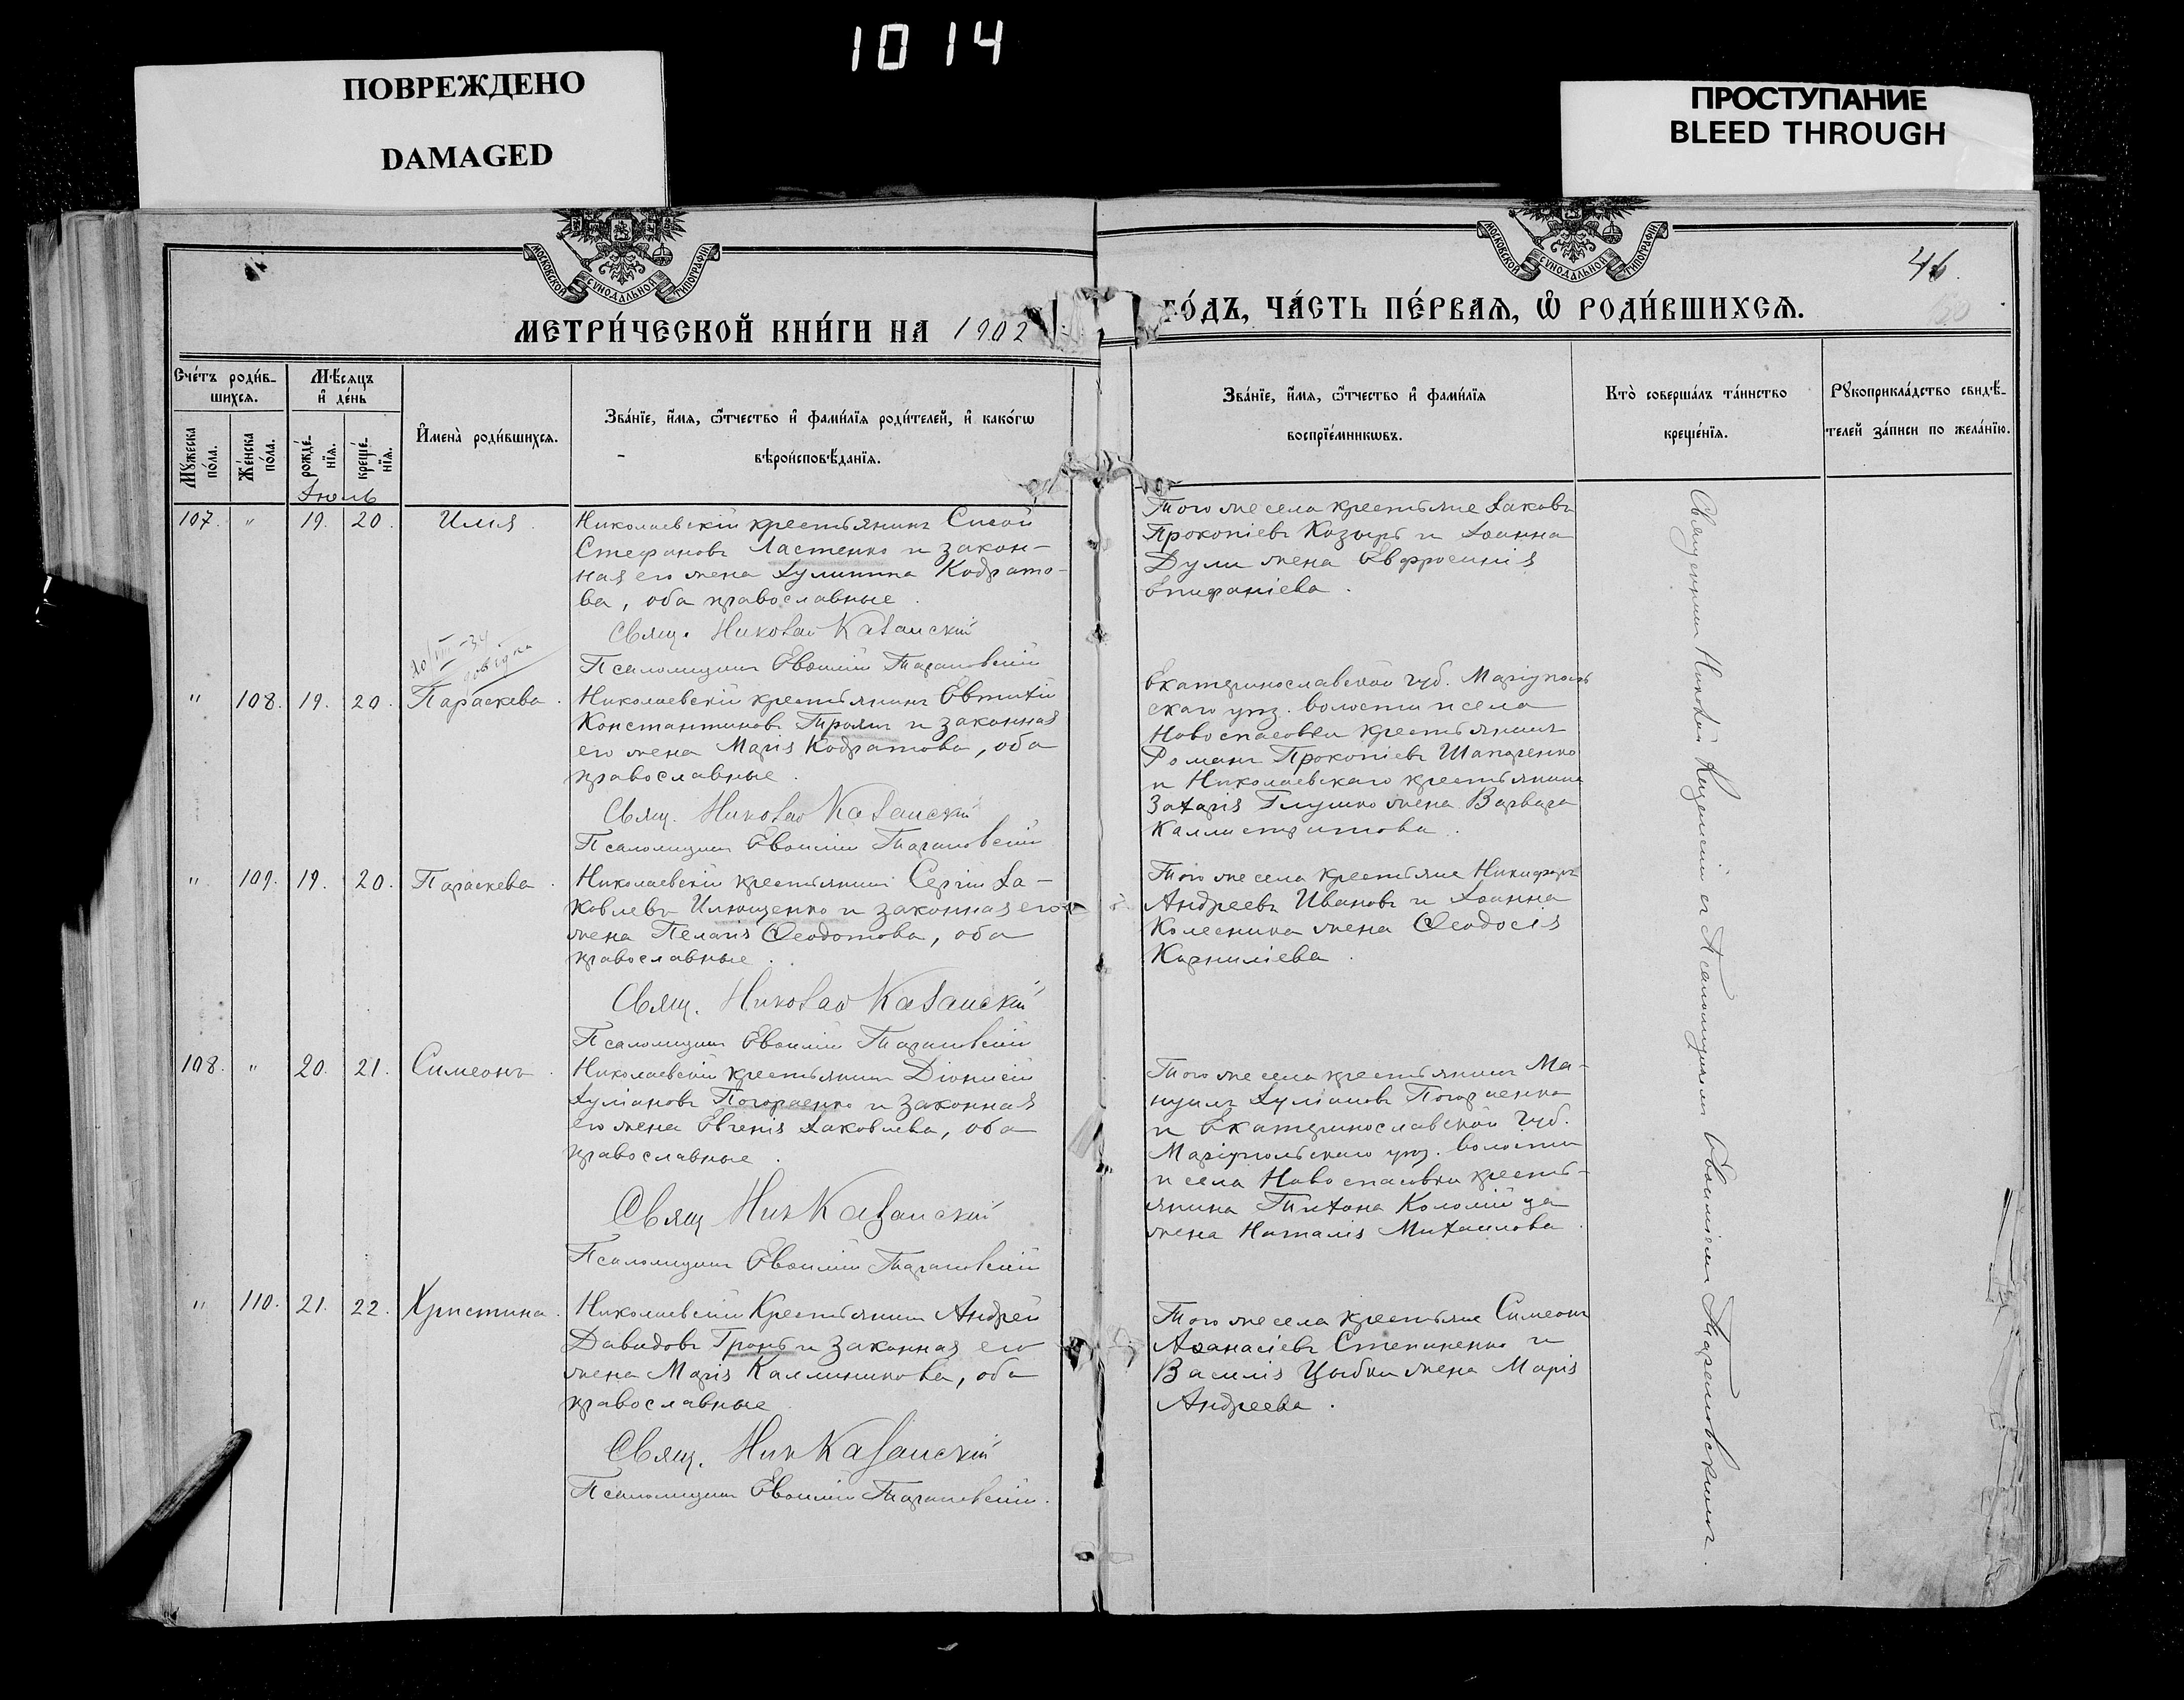 1014
ПОВРЕЖДЕНО
DAMAGED
ПРОСТУПАНИЕ
BLEED THROUGH
МОСКОВСКОЙ СУНОДАЛЬНОЙ ТИПОГРАФІИ
МОСКОВСКОЙ СУНОДАЛЬНОЙ ТИПОГРАФІИ
46.
МЕТРИ́ЧЕСКОЙ КНИ́ГИ НА 1902
ГО́ДЪ, ЧА́СТЬ ПЕ́РВАѦ, Ѽ РОДИ́ВШИХСѦ.
Сче́тъ роди́в-
шихсѧ.
Мꙋжеска
по́ла.
Же́нска
по́ла.
Мѣ́сѧцъ
и҆ де́нь
рожде́-
нїѧ.
креще́-
нїѧ.
И҆мена̀ роди́вшихсѧ.
Зва́нїе, и҆́мѧ, ѻ҆́тчество и҆ фами́лїѧ роди́телей, и҆ како́гѡ
вѣроисповѣ́данїѧ.
Зва́нїе, и҆́мѧ, ѻ҆́тчество и҆ фами́лїѧ
воспрїе́мникѡвъ.
Кто̀ соверша́лъ та́инство
креще́нїѧ.
Рꙋкоприкла́дство свидѣ́-
телей за́писи по жела́нїю.
Іюль
107. " 19. 20. Илія.
Николаевскій крестьянинъ Сисой
Стефановъ Ластенко и закон-
ная его жена Іулитта Кодрато-
ва, оба православные.
Свящ. Николай Казанскій
Псаломщикъ Евѳимій Тарановскій
Того же села крестьяне Іаковъ
Прокопіевъ Козырь и Іоанна
Дули жена Евфросинія
Епифаніева.
" 108. 19. 20. Параскева.
Николаевскій крестьянинъ Евтихій
Константиновъ Троянъ и законная
его жена Марія Кодратова, оба
православные.
Свящ. Николай Казанскій
Псаломщикъ Евѳимій Тарановскій
Екатеринославской губ. Маріуполь
скаго уѣз. волости и села
Новоспасовки крестьянинъ
Романъ Прокопіевъ Шапаренко
и Николаевскаго крестьянина
Захарія Глушко жена Варвара
Каллистратова.
" 109. 19. 20. Параскева.
Николаевскій крестьянинъ Сергій Іа-
ковлевъ Илющенко и законная его
жена Пелагія Ѳеодотова, оба
православные.
Свящ. Николай Казанскій
Псаломщикъ Евѳимій Тарановскій
Того же села крестьяне Никифоръ
Андреевъ Ивановъ и Іоанна
Колесника жена Ѳеодосія
Корниліева.
108. " 20. 21. Симеонъ.
Николаевскій крестьянинъ Діонисій
Іуліановъ Погораенко и законная
его жена Евгенія Іаковлева, оба
православные.
Свящ Ник Казанскій
Псаломщикъ Евѳимій Тарановскій
Того же села крестьянинъ Ма-
нуилъ Іуліановъ Погораенко
и Екатеринославской губ.
Маріупольскаго уѣз. волости
и села Новоспасовки кресть-
янина Тихона Коломійца
жена Наталія Михаилова.
" 110. 21. 22. Христина.
Николаевскій Крестьянинъ Андрей
Давидовъ Гронь и законная его
жена Марія Каллиникова, оба
православные.
Свящ. Ник Казанскій
Псаломщикъ Евѳимій Тарановскій.
Того же села крестьяне Симеонъ
Аѳанасіевъ Степаненко и
Василія Цыбки жена Марія
Андреева.
Священникъ Николай Казанскій съ Псаломщикомъ Евѳиміемъ Тарановскимъ.